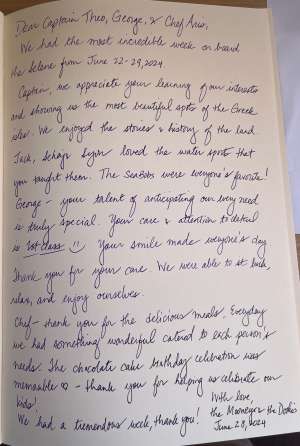 Dear Captain Theo, George, & Chef
We had the most incredible week on board
the Selene from June 22-29, 2024.
Captain, we appreciate your learning of our interests
and showing us the most beautiful spots of the Greek
isles. We enjoyed the stories & history of the land.
Jack, loved the water sports that
you taught them. The SeaBobs were everyone's favorite!
George - your talent of anticipating our every need
is truly special. Your care & attention to detail
is 1st class Your smile made everyone's day
Thank you for your care. We were able to sit back,
relax, and enjoy ourselves.
Chef - thank you for the delicious meals. Everyday
we had something wonderful catered to each person's
needs. The chocolate cake birthday celebration was
memorable ♡ - thank you for helping us celebrate our
kids!
We had a tremendous week, thank you!
With love,
the & the
June 28, 2024